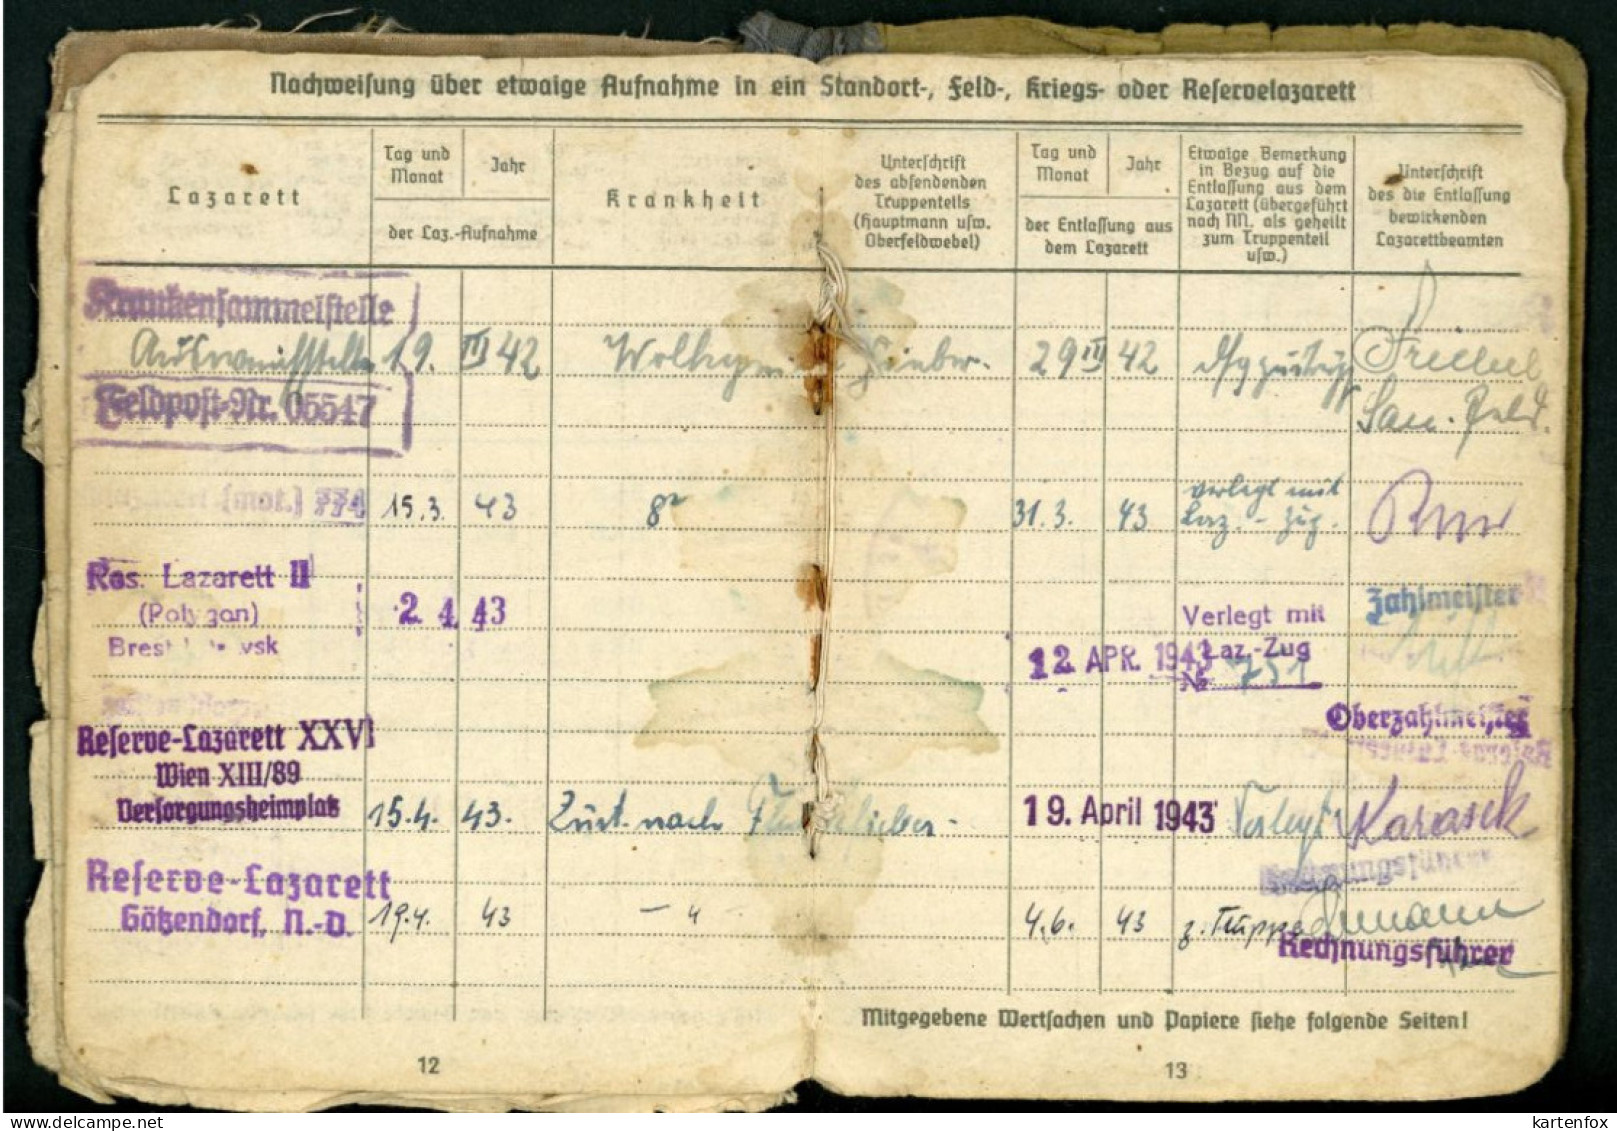 Nachweisung über etwaige Aufnahme in ein Standort-, Feld-, Kriegs- oder Reservelazarett
Lazarett
Tag und Monat
Jahr
der Laz.-Aufnahme
Krankheit
Unterschrift
des absendenden
Truppenteils
(Hauptmann usw.
Oberfeldwebel)
Tag und Monat
Jahr
der Entlassung aus
dem Lazarett
Etwaige Bemerkung
in Bezug auf die
Entlassung aus dem
Lazarett (übergeführt
nach NN. als geheilt
zum Truppenteil
usw.)
Unterschrift
des die Entlassung
bewirkenden
Lazarettbeamten
Krankensammelstelle
19. III 42
29 III 42
San. Feld.
Feldpost-Nr. 05547
(mot.) 774 15.3. 43 8 31.3. 43 verlegt mit
Laz.-Zug.
Res. Lazarett II
(Polygon)
Brest
2.4.43
12. APR. 1943
Verlegt mit
Laz.-Zug
№ 751
Zahlmeister
Oberzahlmeister
Reserve-Lazarett XXVI
Wien XIII/89
Versorgungsheimplatz
15.4. 43. Zust. nach
19. April 1943 Verlegt Karasek
Rechnungsführer
Reserve-Lazarett
Götzendorf, N.-D.
19.4. 43 — " — 4.6. 43 z. Truppe
Rechnungsführer
Mitgegebene Wertsachen und Papiere siehe folgende Seiten!
12
13
kartenfox